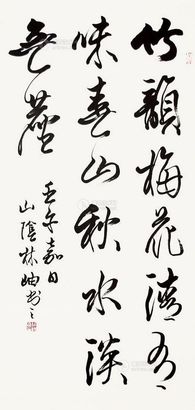 竹韻梅花清有
味春山秋水淡
無塵
壬午嘉日
山陰林岫書之